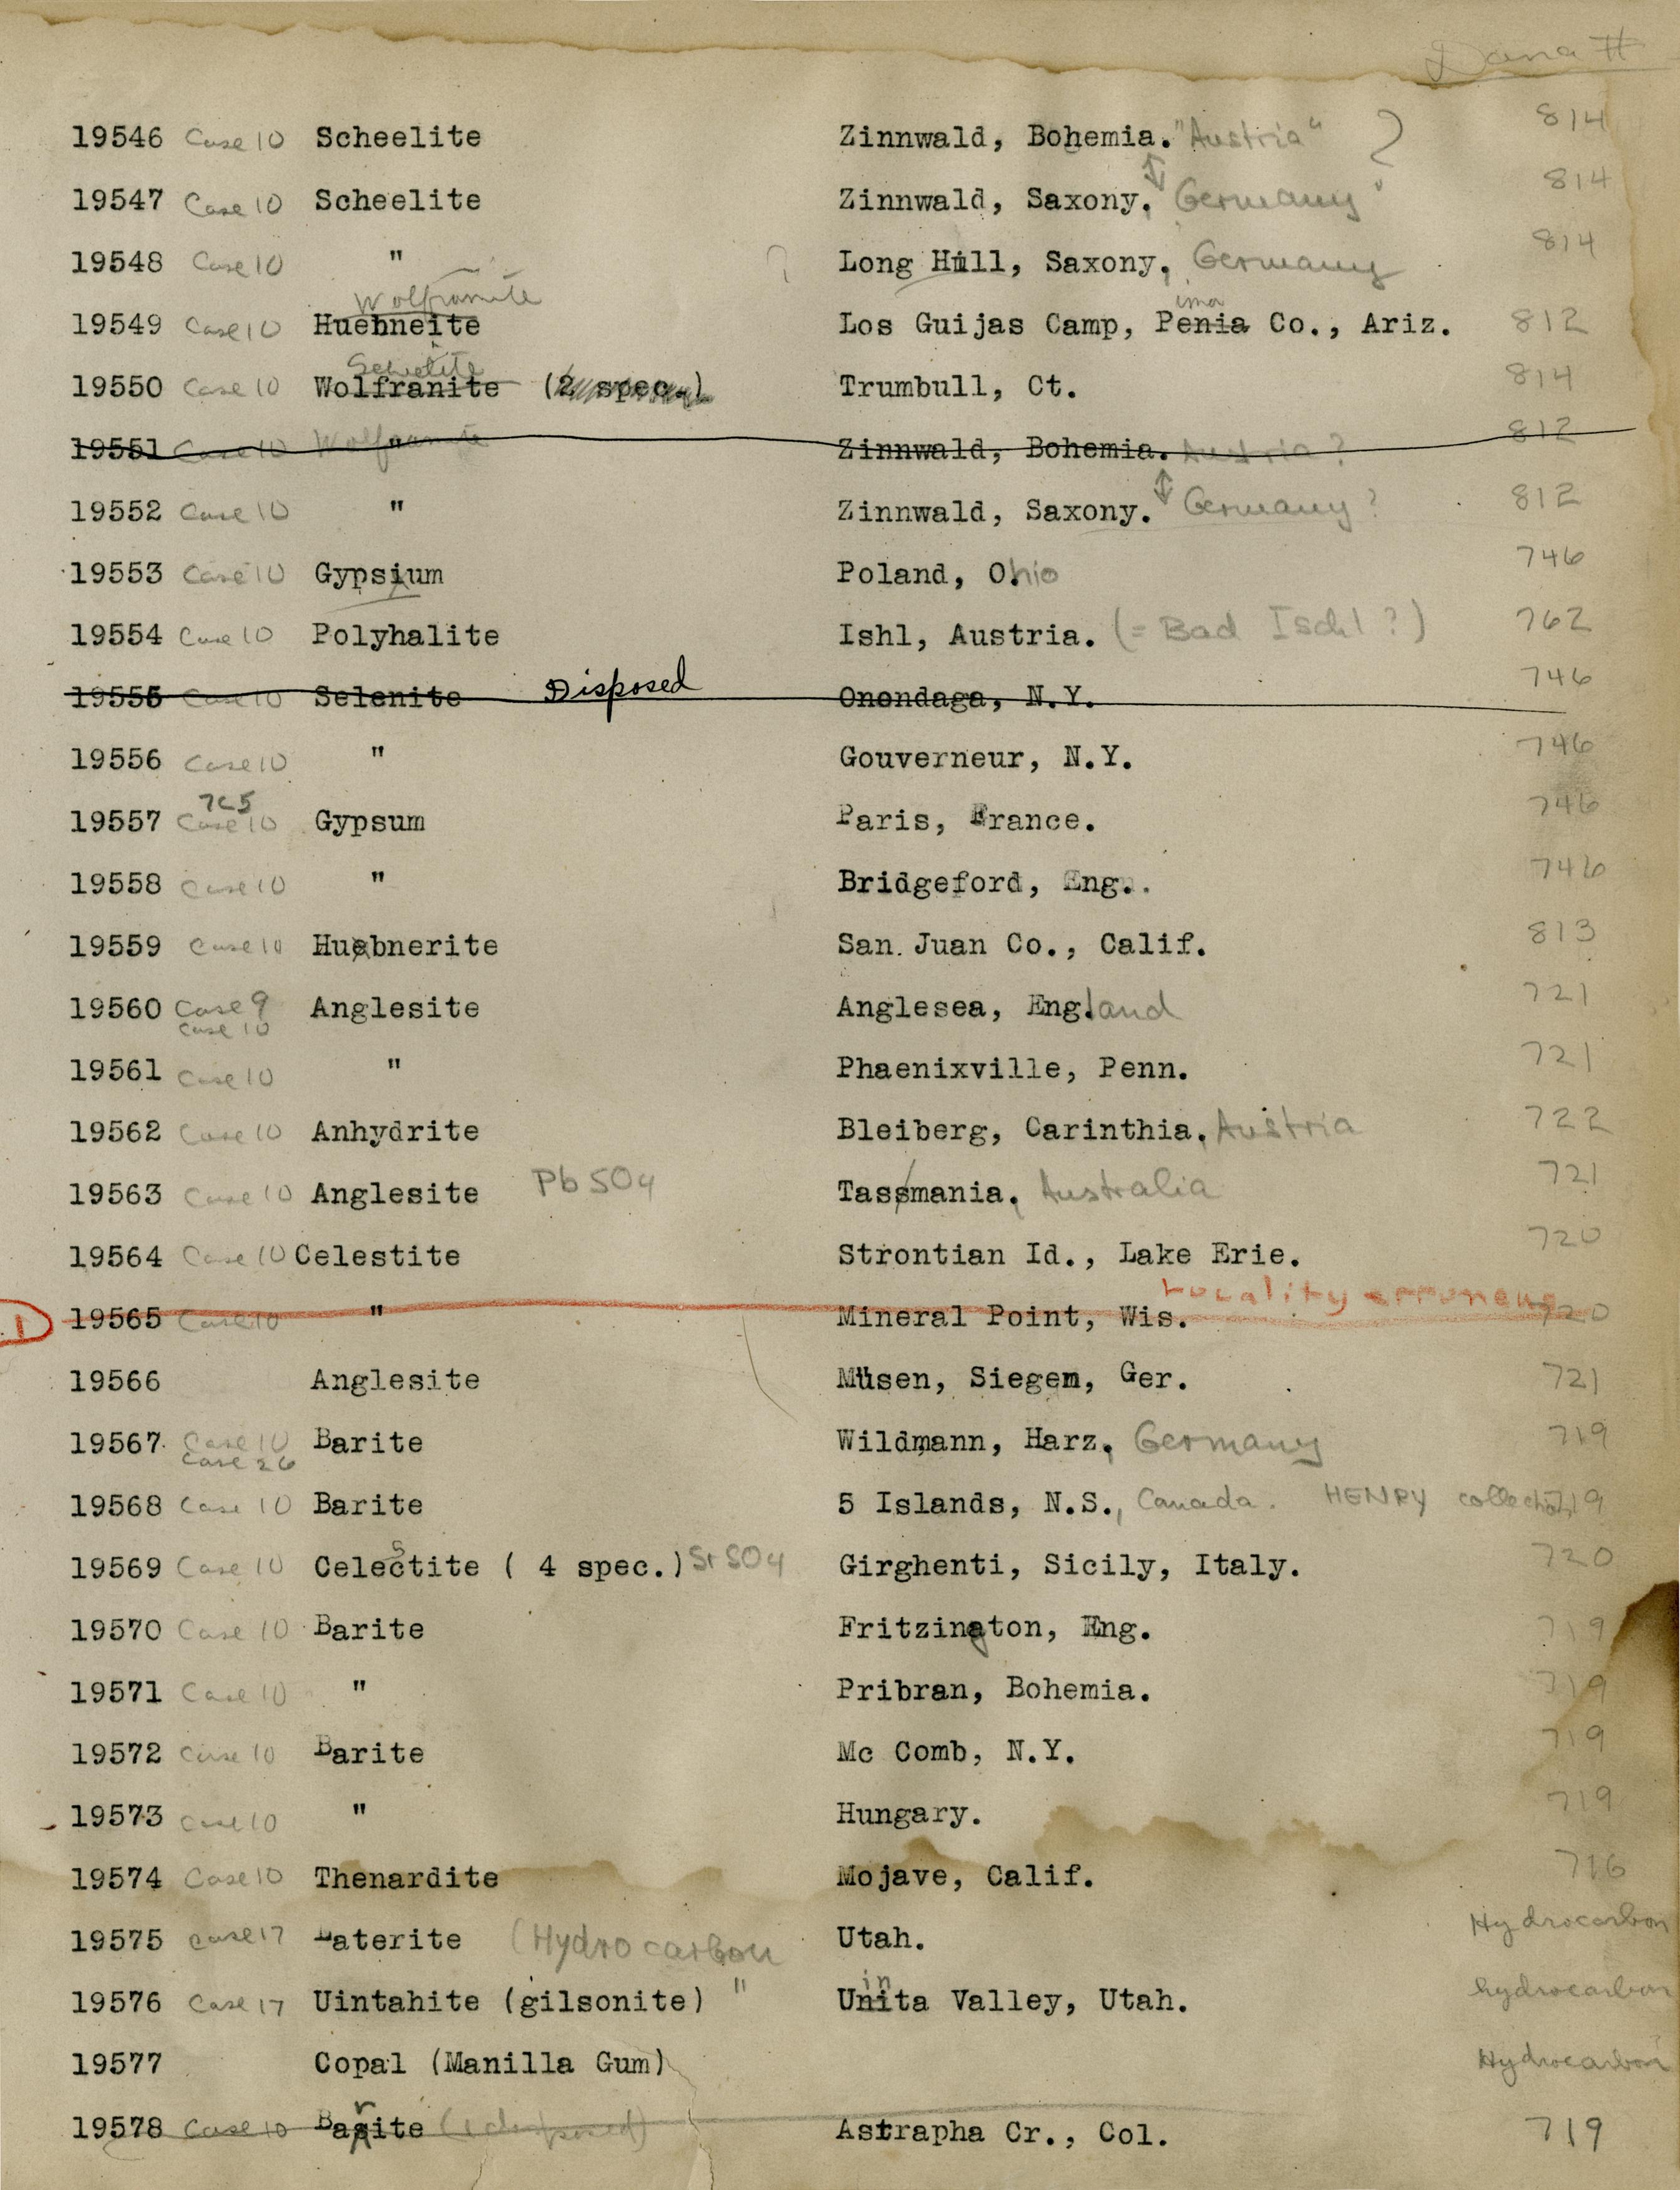 Dana #
19546 Case 10 Scheelite Zinnwald, Bohemia. "Austria" ? 814
19547 Case 10 Scheelite Zinnwald, Saxony. Germany" 814
19548 Case 10 " ? Long Hill, Saxony, Germany 814
Wolframite ima
19549 Case 10 Huebneite Los Guijas Camp, Penia Co., Ariz. 812
Scheelite
19550 Case 10 Wolfranite (2 spec.) Trumbull, Ct. 814
19551 Case 10 Wolframite " Zinnwald, Bohemia. Austria? 812
19552 Case 10 " Zinnwald, Saxony. Germany? 812
19553 Case 10 Gypsium Poland, Ohio 746
19554 Case 10 Polyhalite Ishl, Austria. (= Bad Ischl?) 762
19555 Case 10 Selenite Disposed Onondaga, N.Y. 746
19556 Case 10 " Gouverneur, N.Y. 746
7C5
19557 Case 10 Gypsum Paris, France. 746
19558 Case 10 " Bridgeford, Eng. 746
19559 Case 10 Huebnerite San Juan Co., Calif. 813
19560 Case 9 Anglesite Anglesea, England 721
Case 10
19561 Case 10 " Phaenixville, Penn. 721
19562 Case 10 Anhydrite Bleiberg, Carinthia, Austria 722
19563 Case 10 Anglesite PbSO4 Tassmania, Australia 721
19564 Case 10 Celestite Strontian Id., Lake Erie. 720
Locality erroneous
D 19565 Case 10 " Mineral Point, Wis. 720
19566 Anglesite Müsen, Siegem, Ger. 721
19567 Case 10 Barite Wildmann, Harz, Germany 719
Case 26
19568 Case 10 Barite 5 Islands, N.S., Canada. HENRY collection 719
s
19569 Case 10 Celectite ( 4 spec.) SrSO4 Girghenti, Sicily, Italy. 720
19570 Case 10 Barite Fritzington, Eng. 719
19571 Case 10 " Pribran, Bohemia. 719
19572 Case 10 Barite Mc Comb, N.Y. 719
19573 Case 10 " Hungary. 719
19574 Case 10 Thenardite Mojave, Calif. 716
19575 Case 17 aterite (Hydrocarbon Utah. Hydrocarbon
in
19576 Case 17 Uintahite (gilsonite) " Unita Valley, Utah. hydrocarbon
19577 Copal (Manilla Gum) Hydrocarbon
r
19578 Case 10 Basite (1 disposed) Astrapha Cr., Col. 719